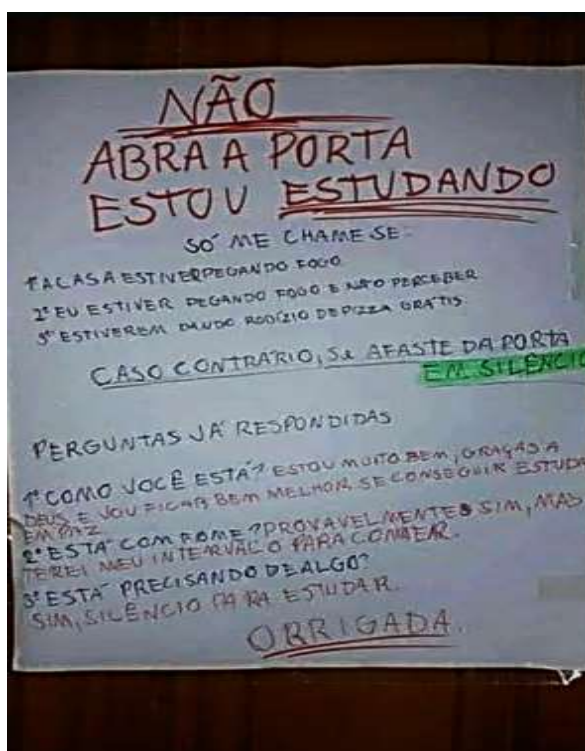 NÃO
ABRA A PORTA
ESTOU ESTUDANDO
SÓ ME CHAME SE:
1º A CASA ESTIVER PEGANDO FOGO
2º EU ESTIVER PEGANDO FOGO E NÃO PERCEBER
3º ESTIVEREM DANDO RODÍZIO DE PIZZA GRÁTIS
CASO CONTRÁRIO, SE AFASTE DA PORTA
EM SILÊNCIO
PERGUNTAS JÁ RESPONDIDAS
1º COMO VOCÊ ESTÁ? ESTOU MUITO BEM, GRAÇAS A
DEUS, E VOU FICAR BEM MELHOR SE CONSEGUIR ESTUDA
EM PAZ
2º ESTÁ COM FOME? PROVAVELMENTE SIM, MAS
TEREI MEU INTERVALO PARA COMER.
3º ESTÁ PRECISANDO DE ALGO?
SIM, SILÊNCIO PARA ESTUDAR.
OBRIGADA.